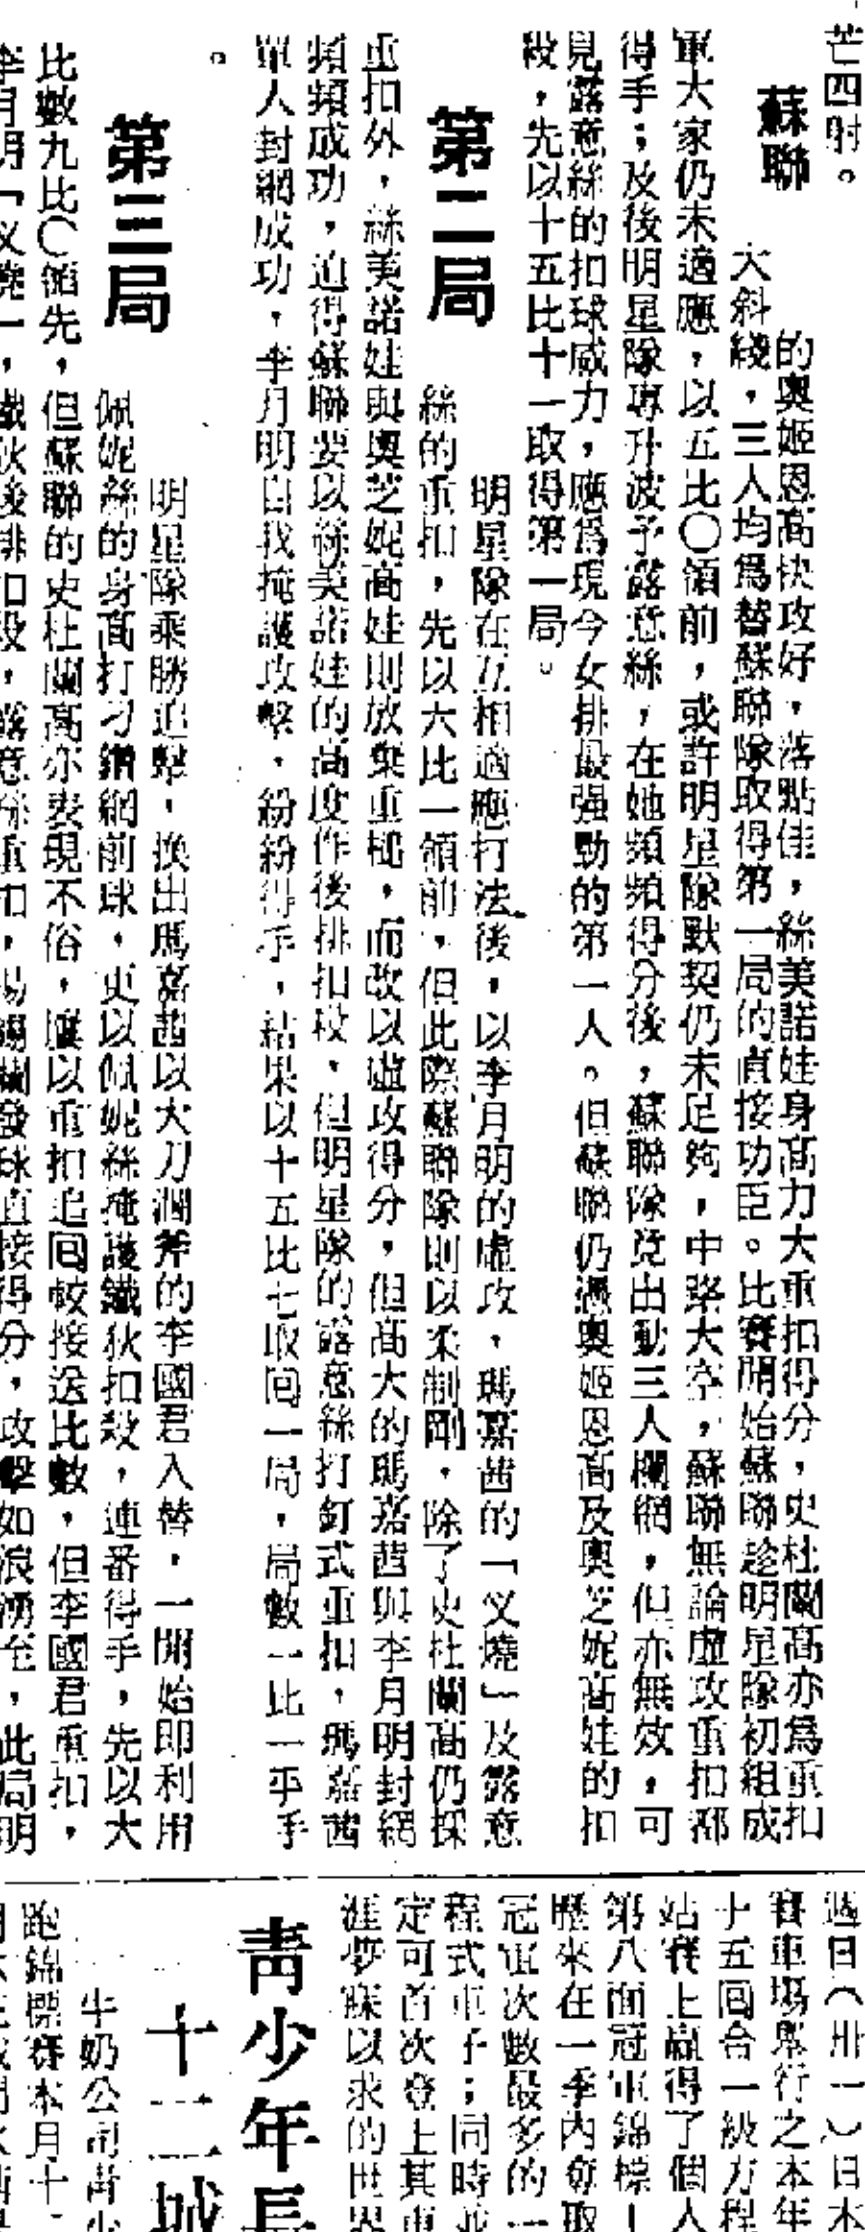 芒四射。
蘇聯
的奧姬恩高快攻好，落點佳，絲美諾娃身高力大重扣得分，史杜蘭高亦爲重扣
大斜綫，三人均爲替蘇聯隊取得第一局的直接功臣。比賽開始蘇聯趁明星隊初組成
軍大家仍未適應，以五比〇領前，或許明星隊默契仍未足夠，中路大空，蘇聯無論虛攻重扣都
得手；及後明星隊專升波予露意絲，在她頻頻得分後，蘇聯隊竟出動三人攔網，但亦無效，可
見露意絲的扣球威力，應爲現今女排最强勁的第一人。但蘇聯仍憑奧姬恩高及奧芝妮高娃的扣
殺，先以十五比十一取得第一局。
第二局
明星隊在互相適應打法後，以李月明的虛攻，瑪嘉茜的「义燒」及露意
絲的重扣，先以六比一領前，但此際蘇聯隊則以柔制剛，除了史杜蘭高仍採
重扣外，絲美諾娃與奧芝妮高娃則放棄重槌，而改以虛攻得分，但高大的瑪嘉茜與李月明封網
頻頻成功，迫得蘇聯要以絲美諾娃的高度作後排扣殺，但明星隊的露意絲打釘式重扣，瑪嘉茜
單人封網成功，李月明自我掩護攻擊，紛紛得手，結果以十五比七取回一局，局數一比一平手
。
第三局
明星隊乘勝追擊，換出瑪嘉茜以大刀濶斧的李國君入替，一開始即利用
佩妮絲的身高打刁鑽網前球，更以佩妮絲掩護鐵狄扣殺，連番得手，先以大
比數九比〇領先，但蘇聯的史杜蘭高亦表現不俗，屢以重扣追回較接近比數，但李國君重扣，
李月明「义燒」，鐵狄後排扣殺，露意絲重扣，楊錫蘭發球直接得分，攻擊如浪湧至，此局明
週日（卅一）日本
賽車場舉行之本年
十五回合一級方程
站賽上贏得了個人
第八面冠軍錦標—
歷來在一季內奪取
冠軍次數最多的一
程式車子；同時並
定可首次登上其車
涯夢寐以求的世界
靑少年長
十二城
牛奶公司靑少
跑錦標賽本月十